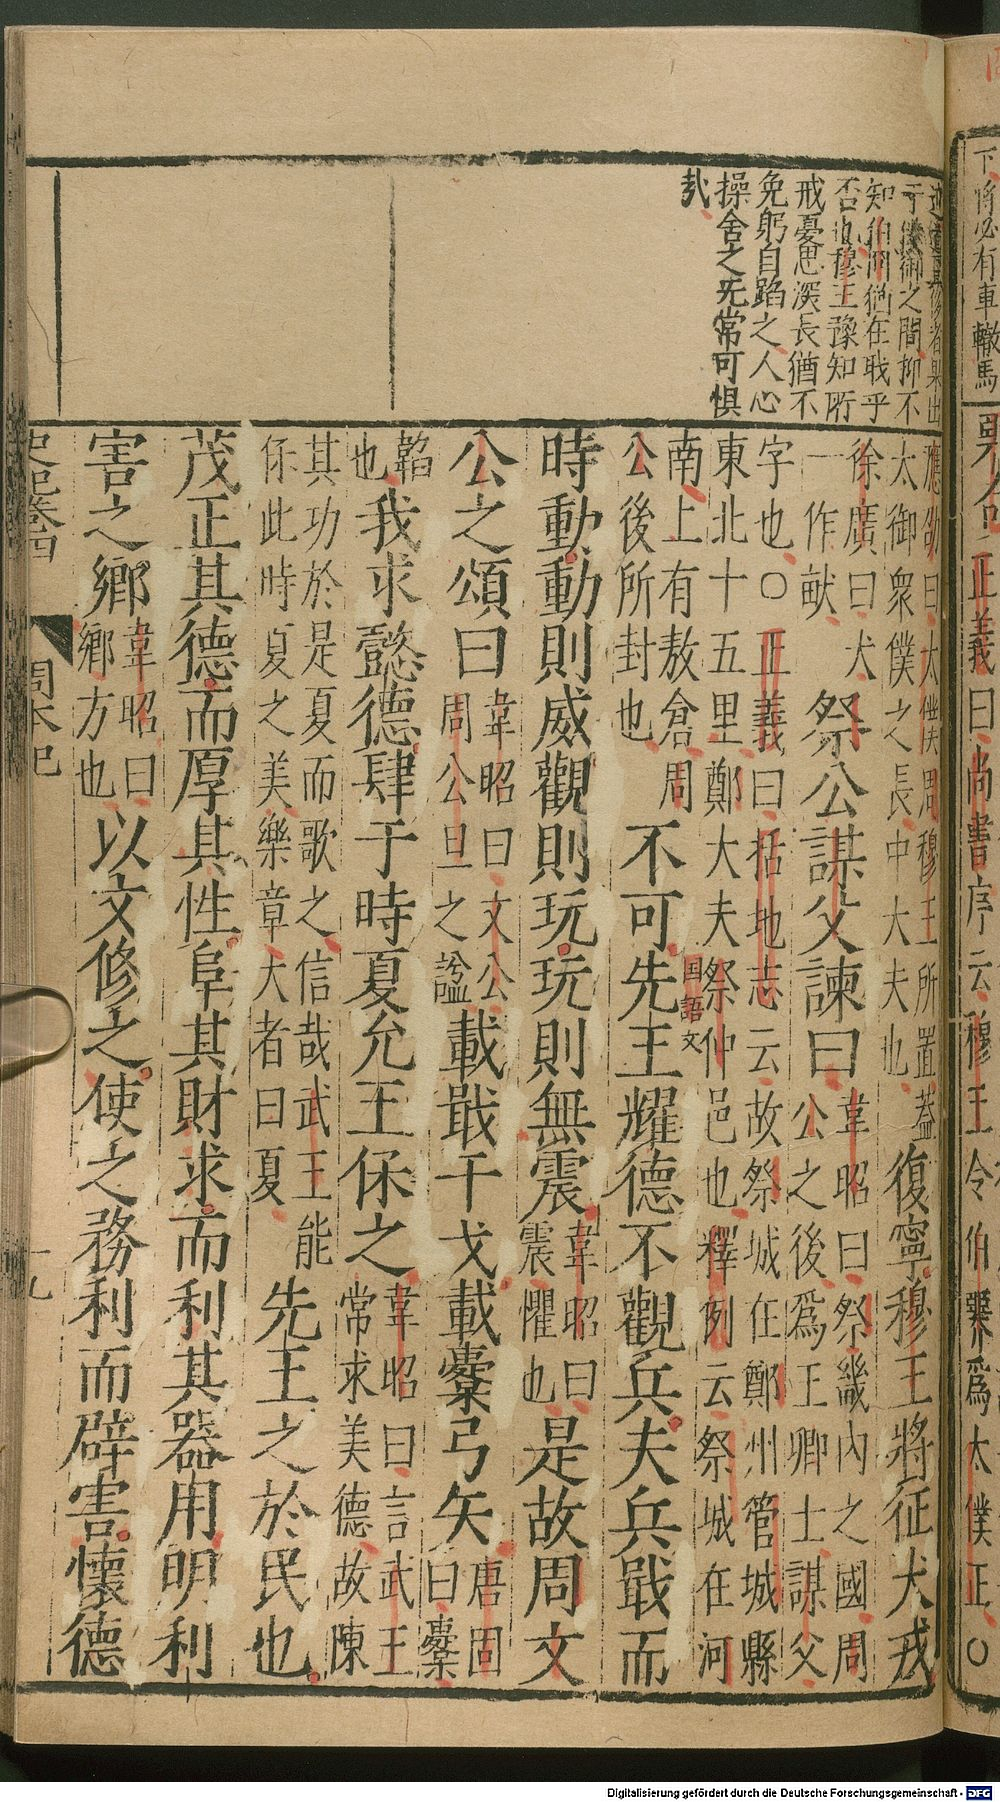 下將必有車轍馬
正義曰尚書序云穆王令伯臩爲太僕正○
于僕御之間抑不
知伯冏猶在職乎
否也穆王豫知所
戒憂思深長猶不
免躬自蹈之人心
操舍之无常可惧
哉
應劭曰太僕周穆王所置蓋
太御衆僕之長中大夫也
復寧穆王將征犬戎
徐廣曰犬
一作畎
祭公謀父諫曰
韋昭曰祭畿內之國周
公之後爲王卿士謀父
字也○正義曰括地志云故祭城在鄭州管城縣
東北十五里鄭大夫祭仲邑也釋例云祭城在河
南上有敖倉周
公後所封也
不可先王耀德不觀兵夫兵戢而
国語文
時動動則威觀則玩玩則無震
韋昭曰
震懼也
是故周文
公之頌曰
韋昭曰文公
周公旦之諡
載戢干戈載櫜弓矢
唐固
曰櫜
韜
也
我求懿德肆于時夏允王保之
韋昭曰言武王
常求美德故陳
其功於是夏而歌之信哉武王能
保此時夏之美樂章大者曰夏
先王之於民也
茂正其德而厚其性阜其財求而利其器用明利
害之鄉
韋昭曰
鄉方也
以文修之使之務利而辟害懷德
史記卷四
周本紀
十九
Digitalisierung gefördert durch die Deutsche Forschungsgemeinschaft - DFG